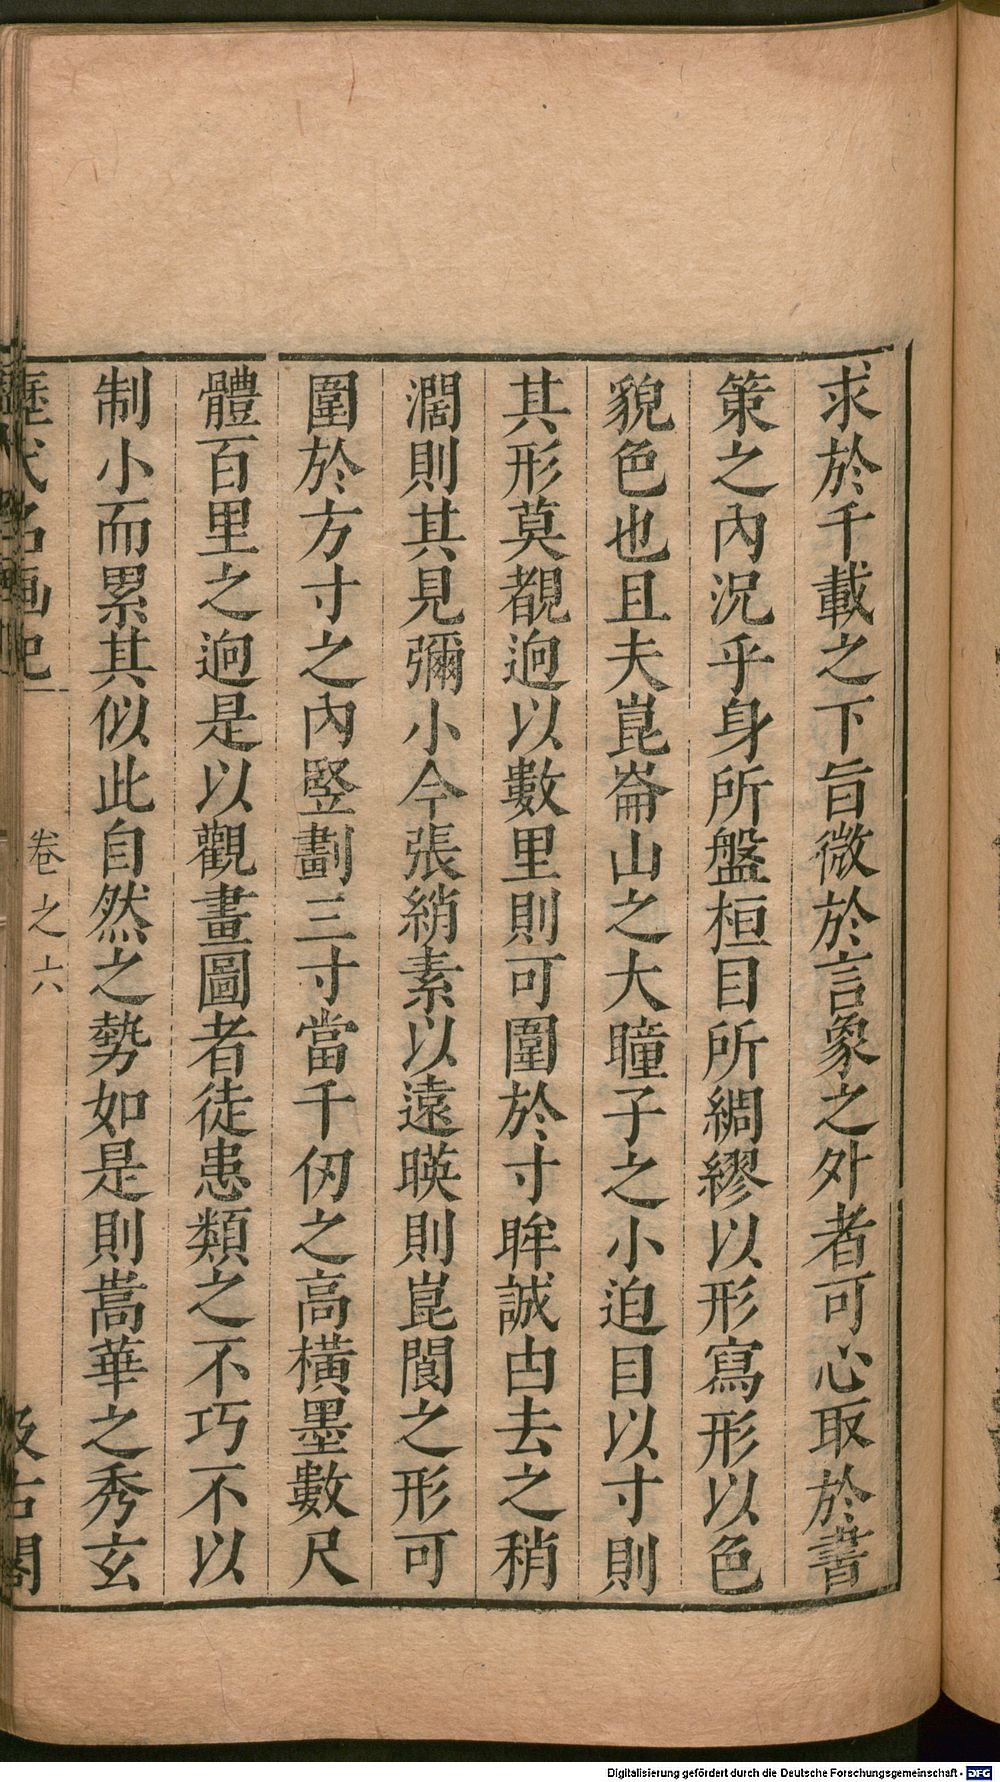 求於千載之下旨微於言象之外者可心取於書
策之內況乎身所盤桓目所綢繆以形寫形以色
貌色也且夫崑崙山之大瞳子之小迫目以寸則
其形莫覩逈以數里則可圍於寸眸誠由去之稍
濶則其見彌小今張綃素以遠暎則崑閬之形可
圍於方寸之內竪劃三寸當千仞之高橫墨數尺
體百里之逈是以觀畫圖者徒患類之不巧不以
制小而累其似此自然之勢如是則嵩華之秀玄
歷代名画记 卷之六 汲古閣
Digitalisierung gefördert durch die Deutsche Forschungsgemeinschaft - DFG